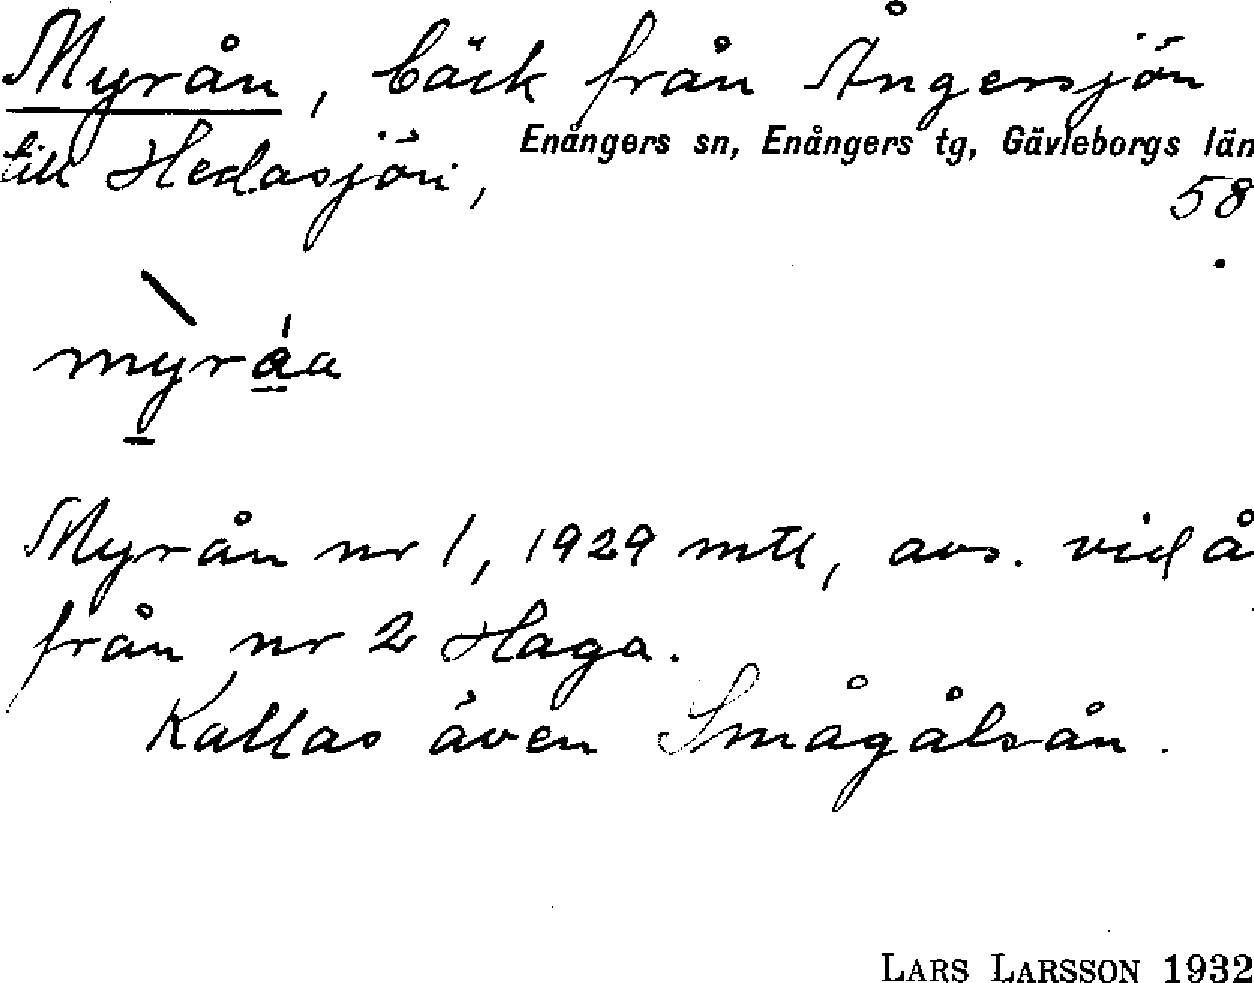 Myrån, bäck från Ångersjön
Enångers sn, Enångers tg, Gävleborgs län
till Hedasjön,
58
myråa
Myrån nr 1, 1929 mtl, avs. vid å
från nr 2 Haga.
Kallas även Smågålsån.
LARS LARSSON 1932